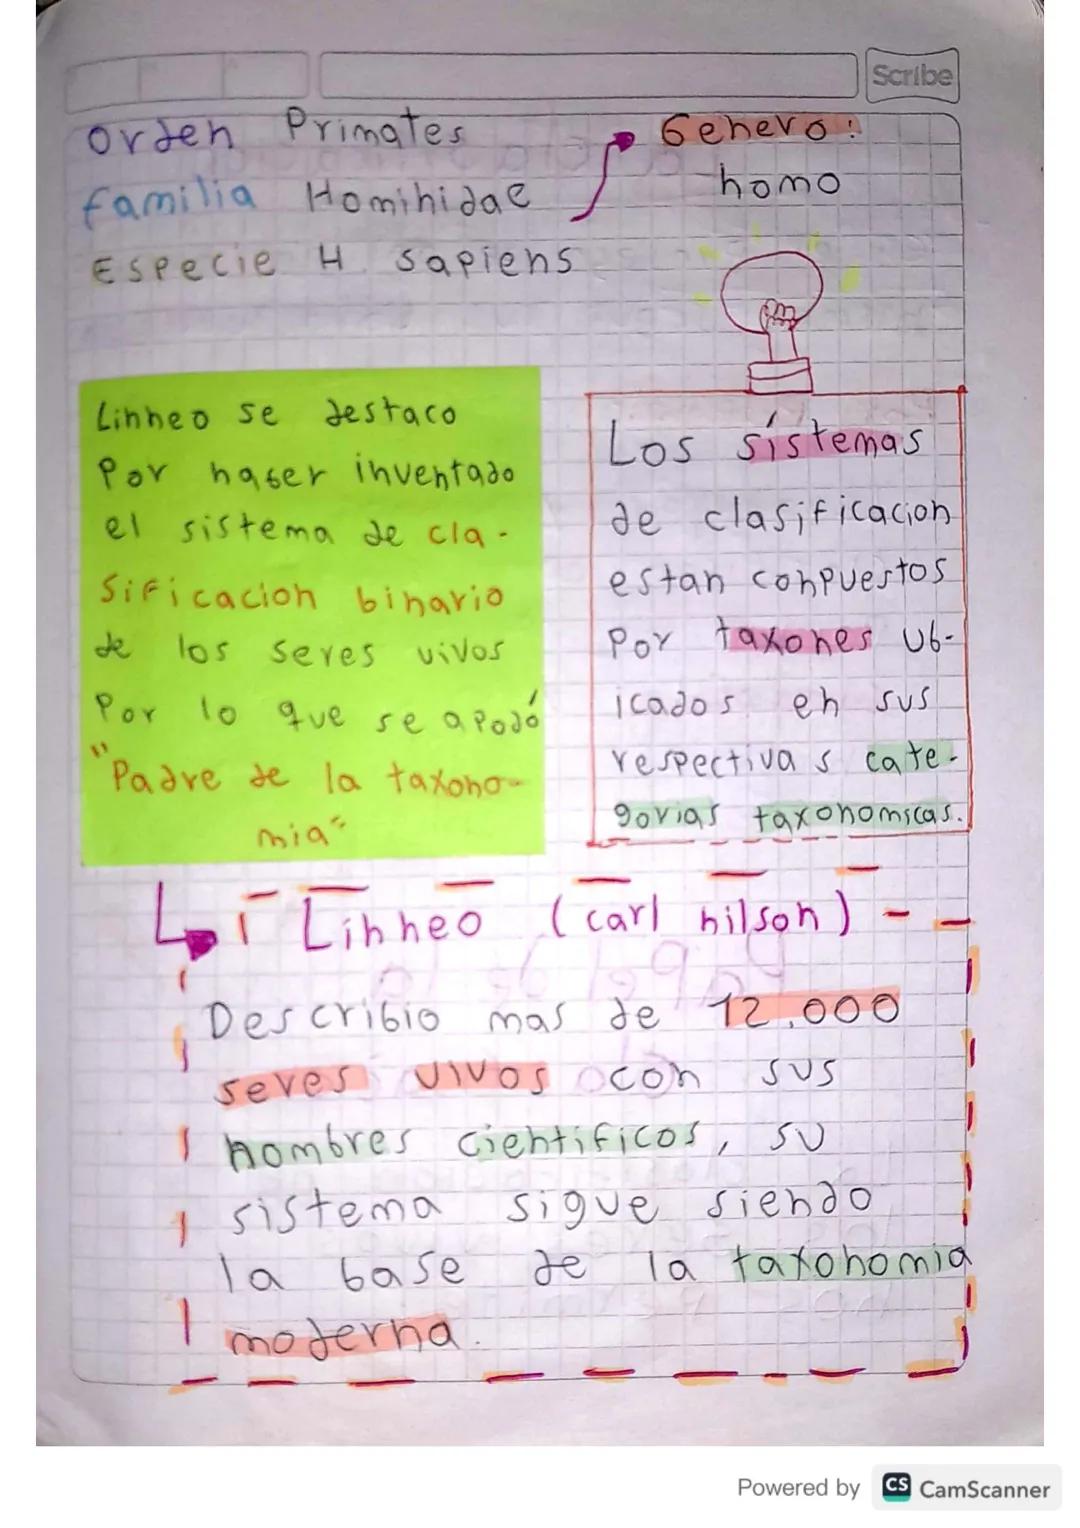 Scribe
Orden Primates
Genero:
homo
familia Hominidae
Especie H sapiens
Linneo se destaco
Por haber inventado
el sistema de cla-
sificacion binario
de los seres vivos
Por lo que se apodó
"Padre de la taxono-
mia"
Los sístemas
de clasificacion
estan conpuestos
Por taxones ub-
icados en sus
respectivas cate-
gorias taxonomicas.
Linneo (carl nilson)
Describio mas de 12.000
seres vivos con sus
nombres cientificos, su
sistema sigue siendo
la base de la taxonomia
moderna.
Powered by CS CamScanner